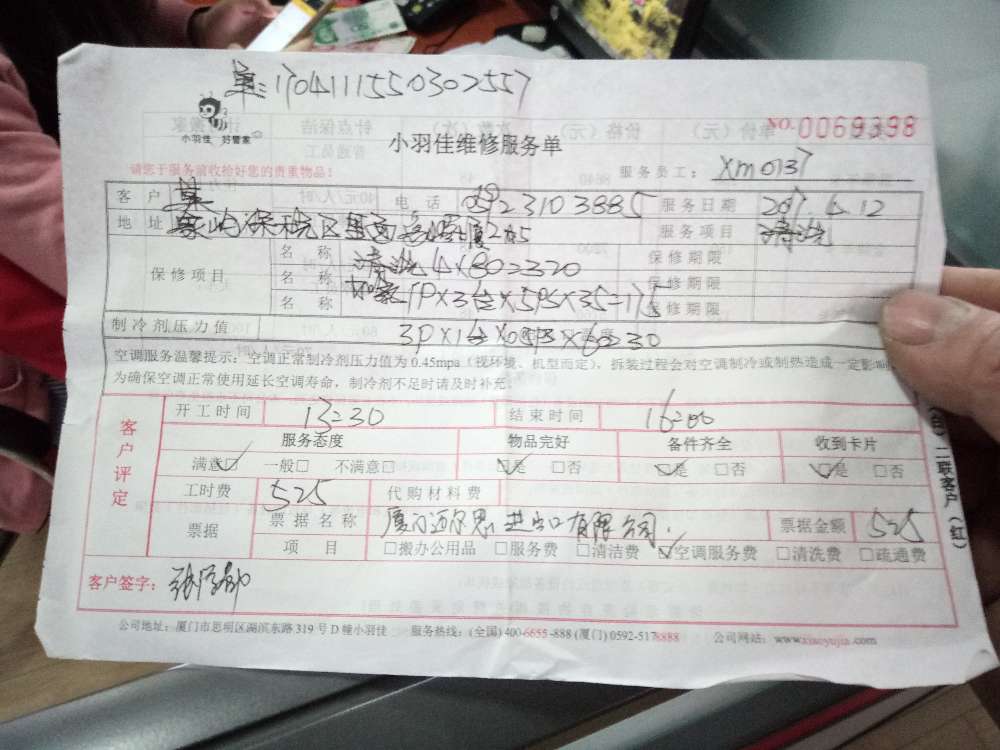 单:1704111550302557
小羽佳 好管家
NO. 0069398
小羽佳维修服务单
请您于服务前收拾好您的贵重物品!
服务员工: Xm0137
客户 电话 05923103885 服务日期 2017.6.12
地址 保税区 245 服务项目 清洗
保修项目 名称 清洗4X80=320 保修期限
名称 加氟1P×3台×5P5×35=175 保修期限
名称 保修期限
制冷剂压力值 3P×1台×0.5P5×60=30
空调服务温馨提示:空调正常制冷剂压力值为0.45mpa(视环境、机型而定),拆装过程会对空调制冷或制热造成一定影响
为确保空调正常使用延长空调寿命,制冷剂不足时请及时补充。
客户评定
开工时间 13:30 结束时间 16:00
服务态度 物品完好 备件齐全 收到卡片
满意☑ 一般□ 不满意□ ☑是 □否 ☑是 □否 ☑是 □否
工时费 525 代购材料费
票据 票据名称 厦门迈尔思进出口有限公司. 票据金额 525
项目 □搬办公用品 □服务费 □清洁费 ☑空调服务费 □清洗费 □疏通费
客户签字:
公司地址:厦门市思明区湖滨东路319号D幢小羽佳 服务热线:(全国)400-6655-888 (厦门)0592-5178888 公司网站:www.xiaoyujia.com
(白)二联客户(红)